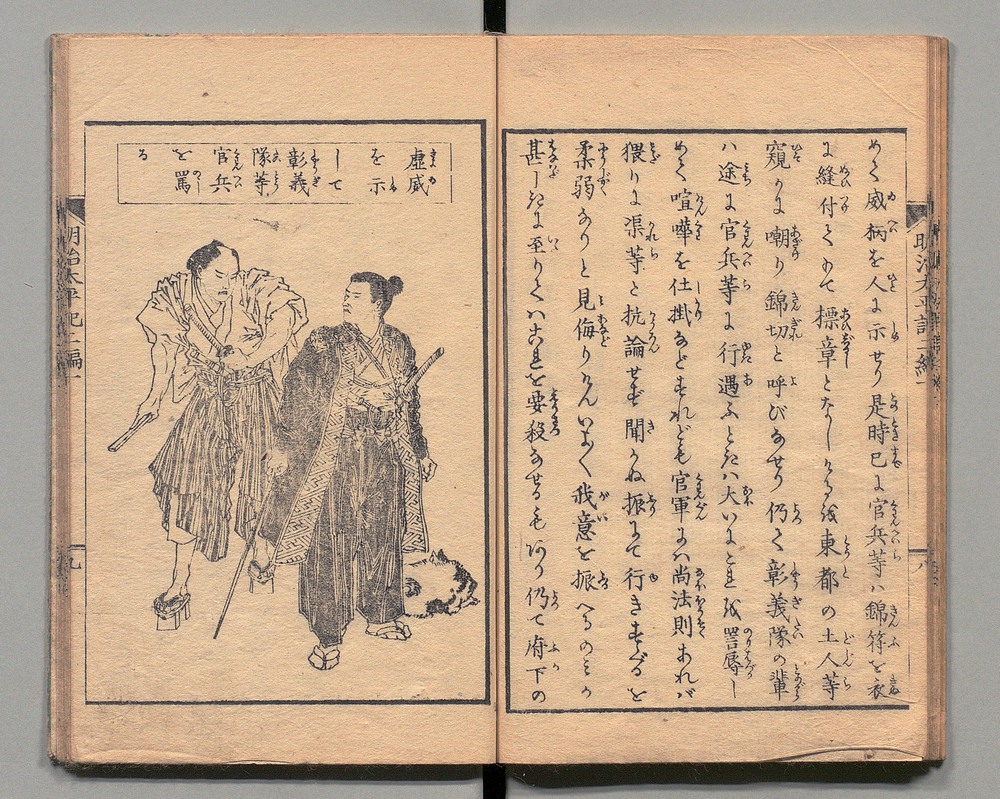 明治太平記二編一
八
めて威柄を人に示せり是時已に官兵等ハ錦符を衣
に縫付て標章となしけるを東都の土人等
窺かに嘲り錦切と呼びなせり仍て彰義隊の輩
ハ途に官兵等に行遇ふときハ大いにこれを詈辱し
めて喧嘩を仕掛などすれども官軍にハ尚法則あれバ
猥りに渠等と抗論せず聞かぬ振にて行きすぐるを
柔弱なりと見侮りけんいよ〱我意を振へるのミか
甚しきに至りてハこれを要殺なせるもあり仍て府下の
虚威
を示
して
彰義
隊等
官兵
を罵
る
明治太平記二編一
九